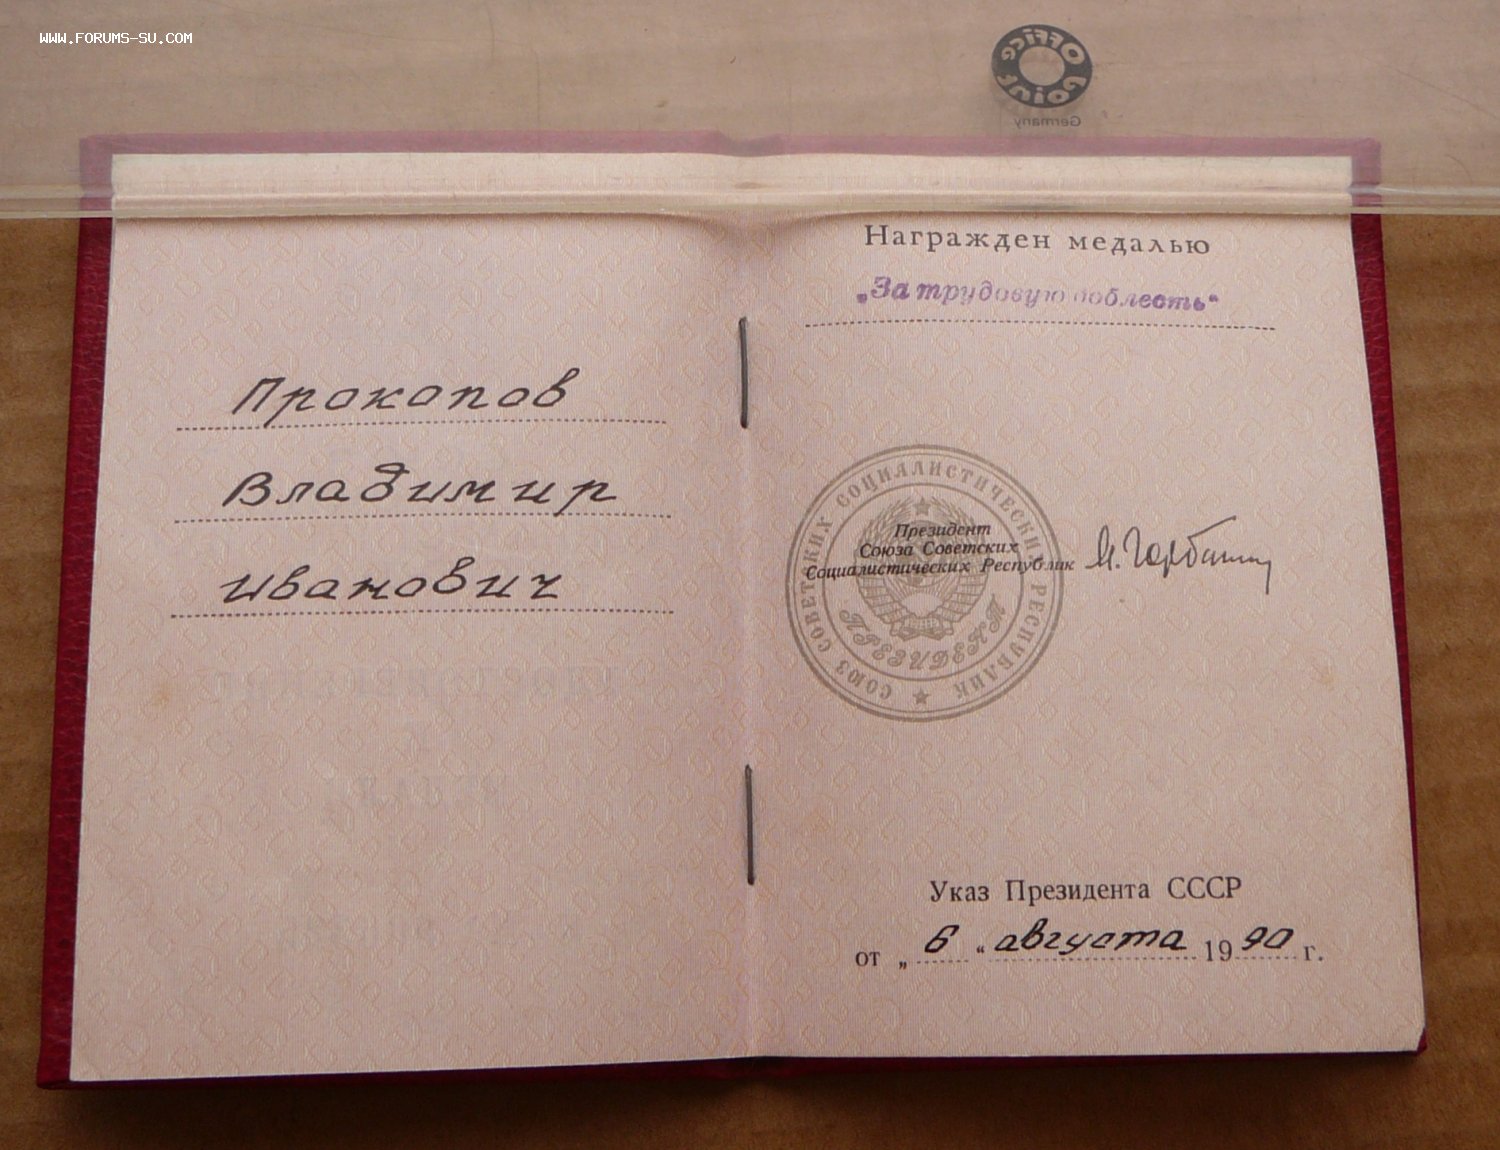 WWW.FORUMS-SU.COM
Office Point
Germany
Прокопов
Владимир
Иванович
Награжден медалью
„За трудовую доблесть“
СОЮЗ СОВЕТСКИХ СОЦИАЛИСТИЧЕСКИХ РЕСПУБЛИК
Президент
Союза Советских
Социалистических Республик
М. Горбачев
ПРЕЗИДЕНТ
Указ Президента СССР
от „ 6 “ августа 1990 г.